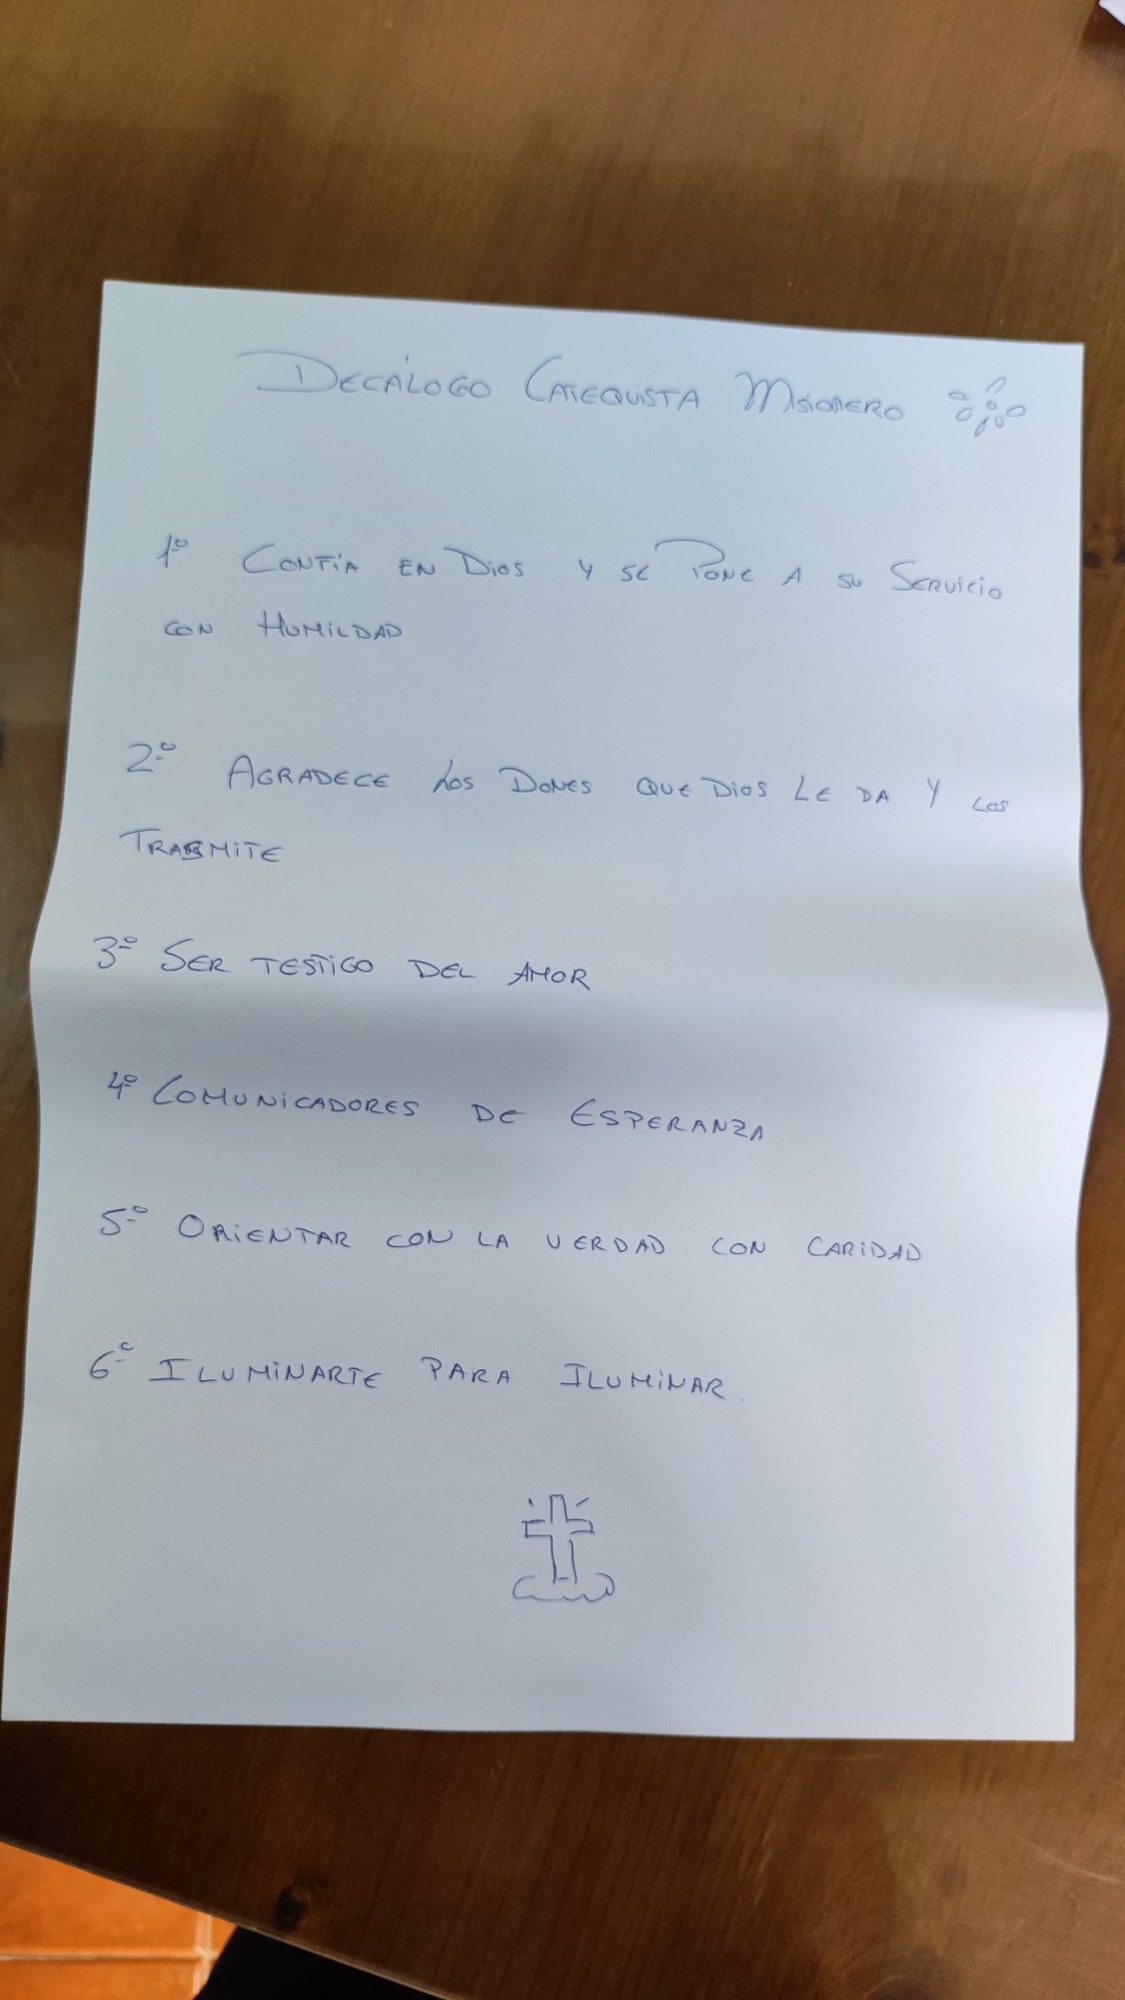 DECÁLOGO CATEQUISTA MISIONERO
1º CONFÍA EN DIOS Y SE PONE A SU SERVICIO
CON HUMILDAD
2º AGRADECE LOS DONES QUE DIOS LE DA Y LOS
TRASMITE
3º SER TESTIGO DEL AMOR
4º COMUNICADORES DE ESPERANZA
5º ORIENTAR CON LA VERDAD CON CARIDAD
6º ILUMINARTE PARA ILUMINAR.